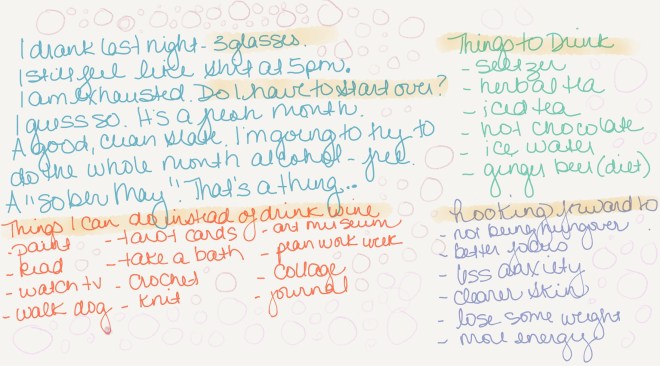 I drank last night - 3 glasses.
I still feel like shit at 5pm.
I am exhausted. Do I have to start over?
I guess so. It's a fresh month.
A good, clean slate. I'm going to try to
do the whole month alcohol-free.
A "sober May". That's a thing...
Things to Drink
- seltzer
- herbal tea
- iced tea
- hot chocolate
- ice water
- ginger beer (diet)
Things I can do instead of drink wine
- paint
- read
- watch tv
- walk dog
- tarot cards
- take a bath
- crochet
- knit
- art museum
- plan work week
- collage
- journal
Looking forward to
- not being hungover
- better focus
- less anxiety
- clearer skin
- lose some weight
- more energy